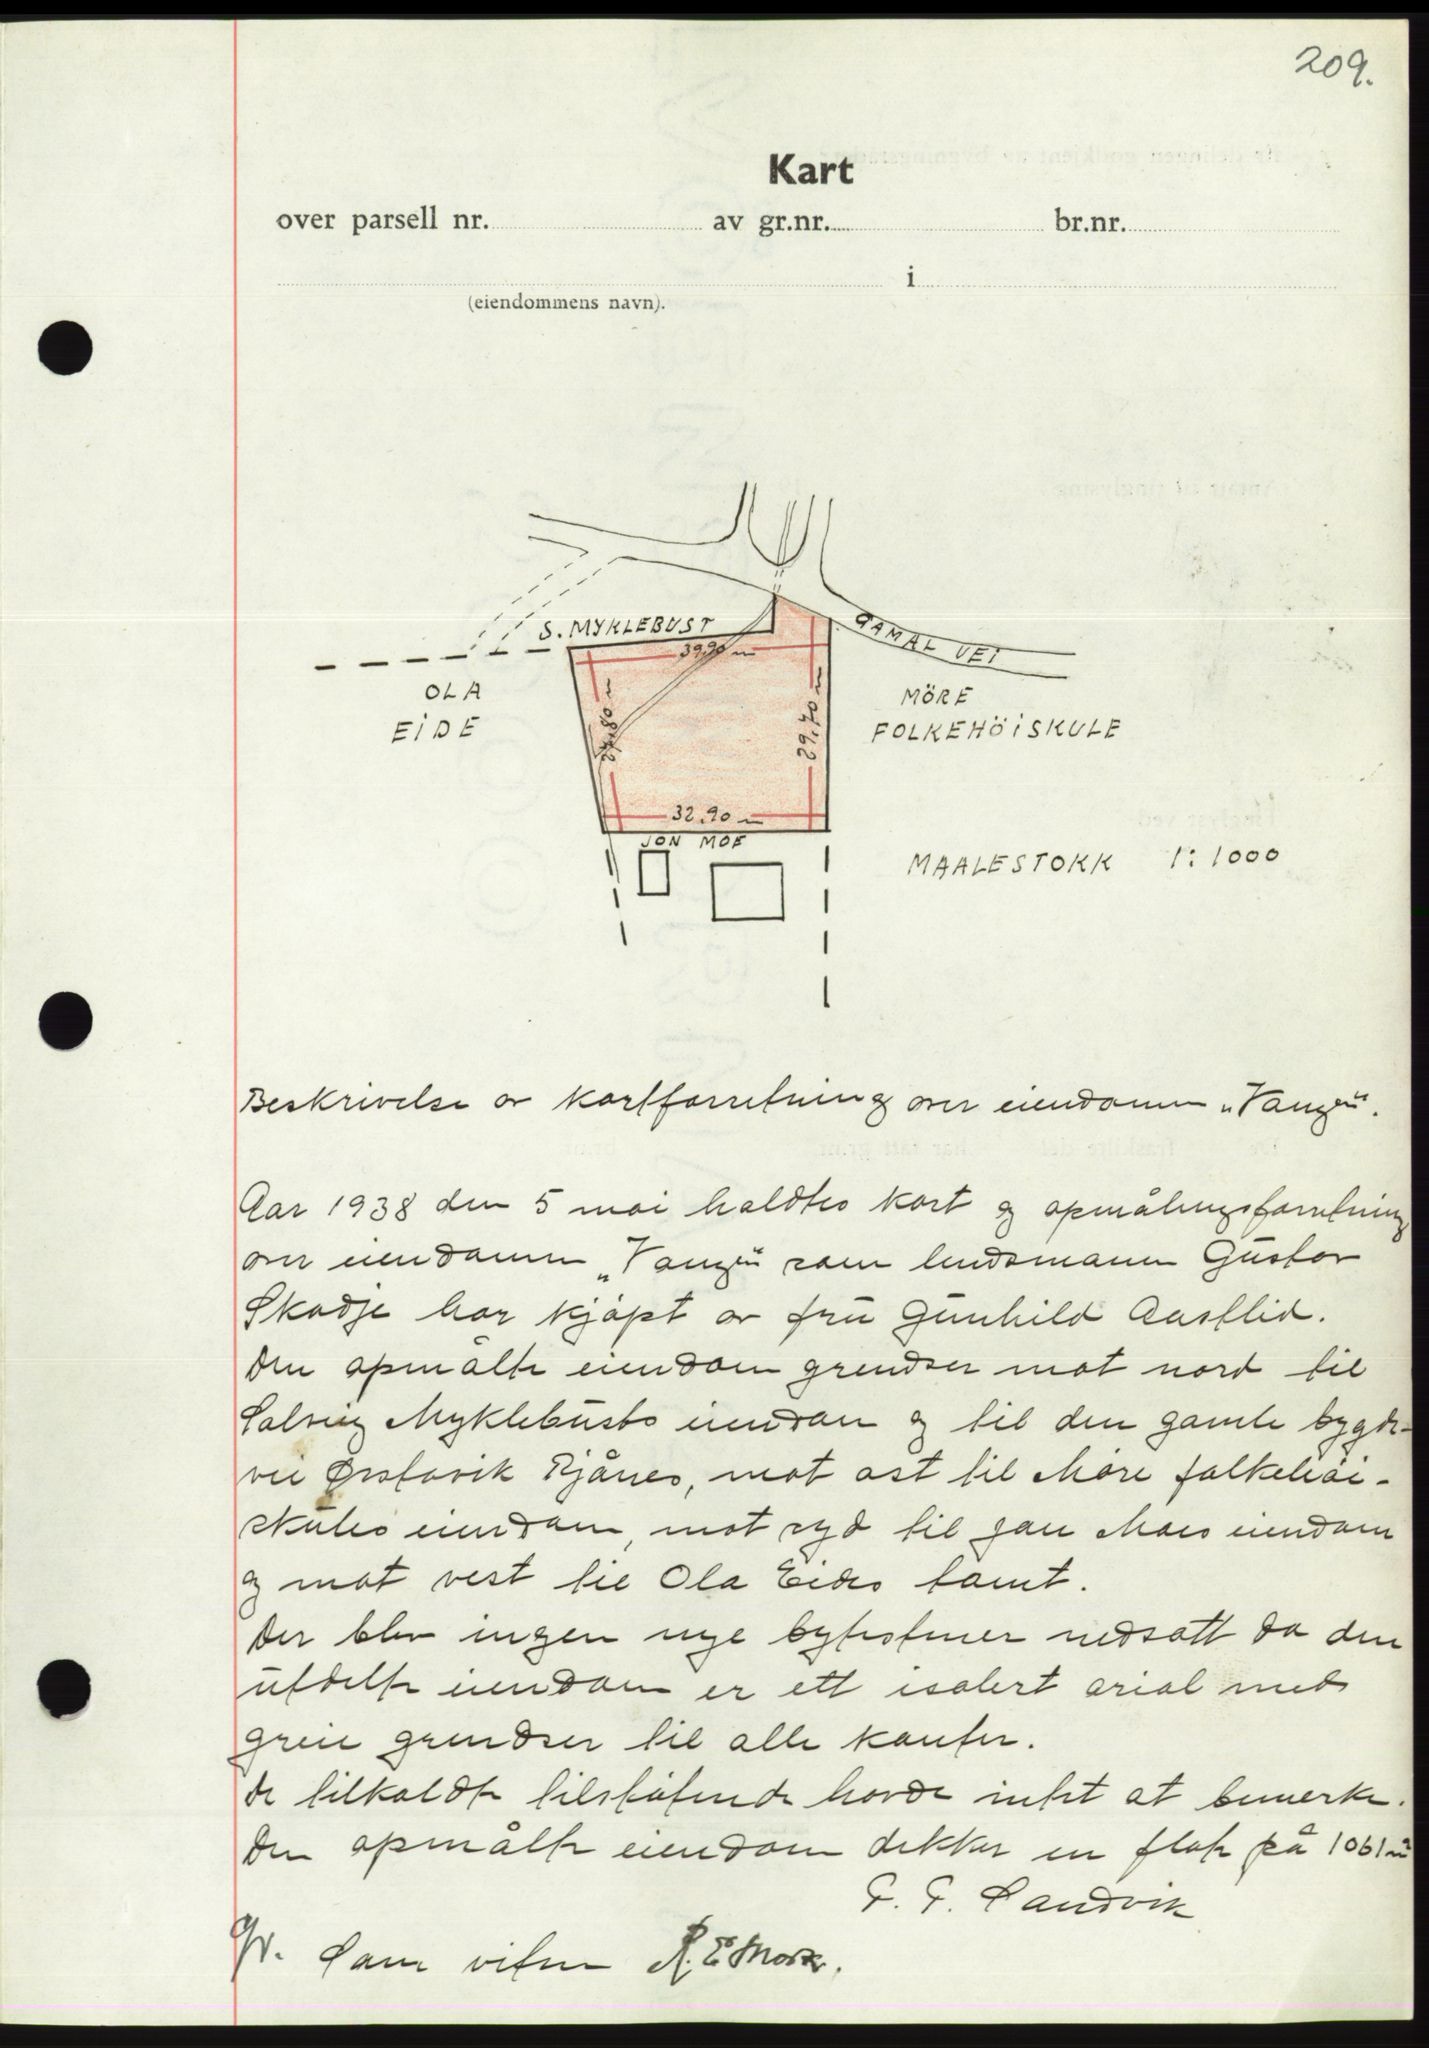 209.
Kart
over parsell nr. av gr.nr. br.nr.
i
(eiendommens navn).
S. MYKLEBUST
GAMAL VEI
39,90 m
OLA
EIDE
27,80 m
29,70 m
MÖRE
FOLKEHÖISKULE
32,90 m
JON MOE
MAALESTOKK 1:1000
Beskrivelse av kartforretning over eiendomen „Vangen“.
Aar 1938 den 5 mai holdtes kart og opmålingsforretning
over eiendomen „Vangen“ som lendsmanen Gustav
Skodje har kjöpt av fru Gunhild Aaslid.
Den opmålte eiendom grendser mot nord til
Solveig Myklebusts eiendom og til den gamle bygde-
vei Ørstavik Rjånes, mot öst til Möre folkehöi-
skules eiendom, mot syd til Jon Moes eiendom
og mot vest til Ola Eides tomt.
Der blev ingen nye bytesteiner nedsatt da den
utdelte eiendom er ett isolert arial med
greie grendser til alle kanter.
De tilkaldte tilstötende havde intet at bemerke.
Den opmålte eiendom dekker en flate på 1061 m²
Sandvik
Som vitne R. E. Mork.